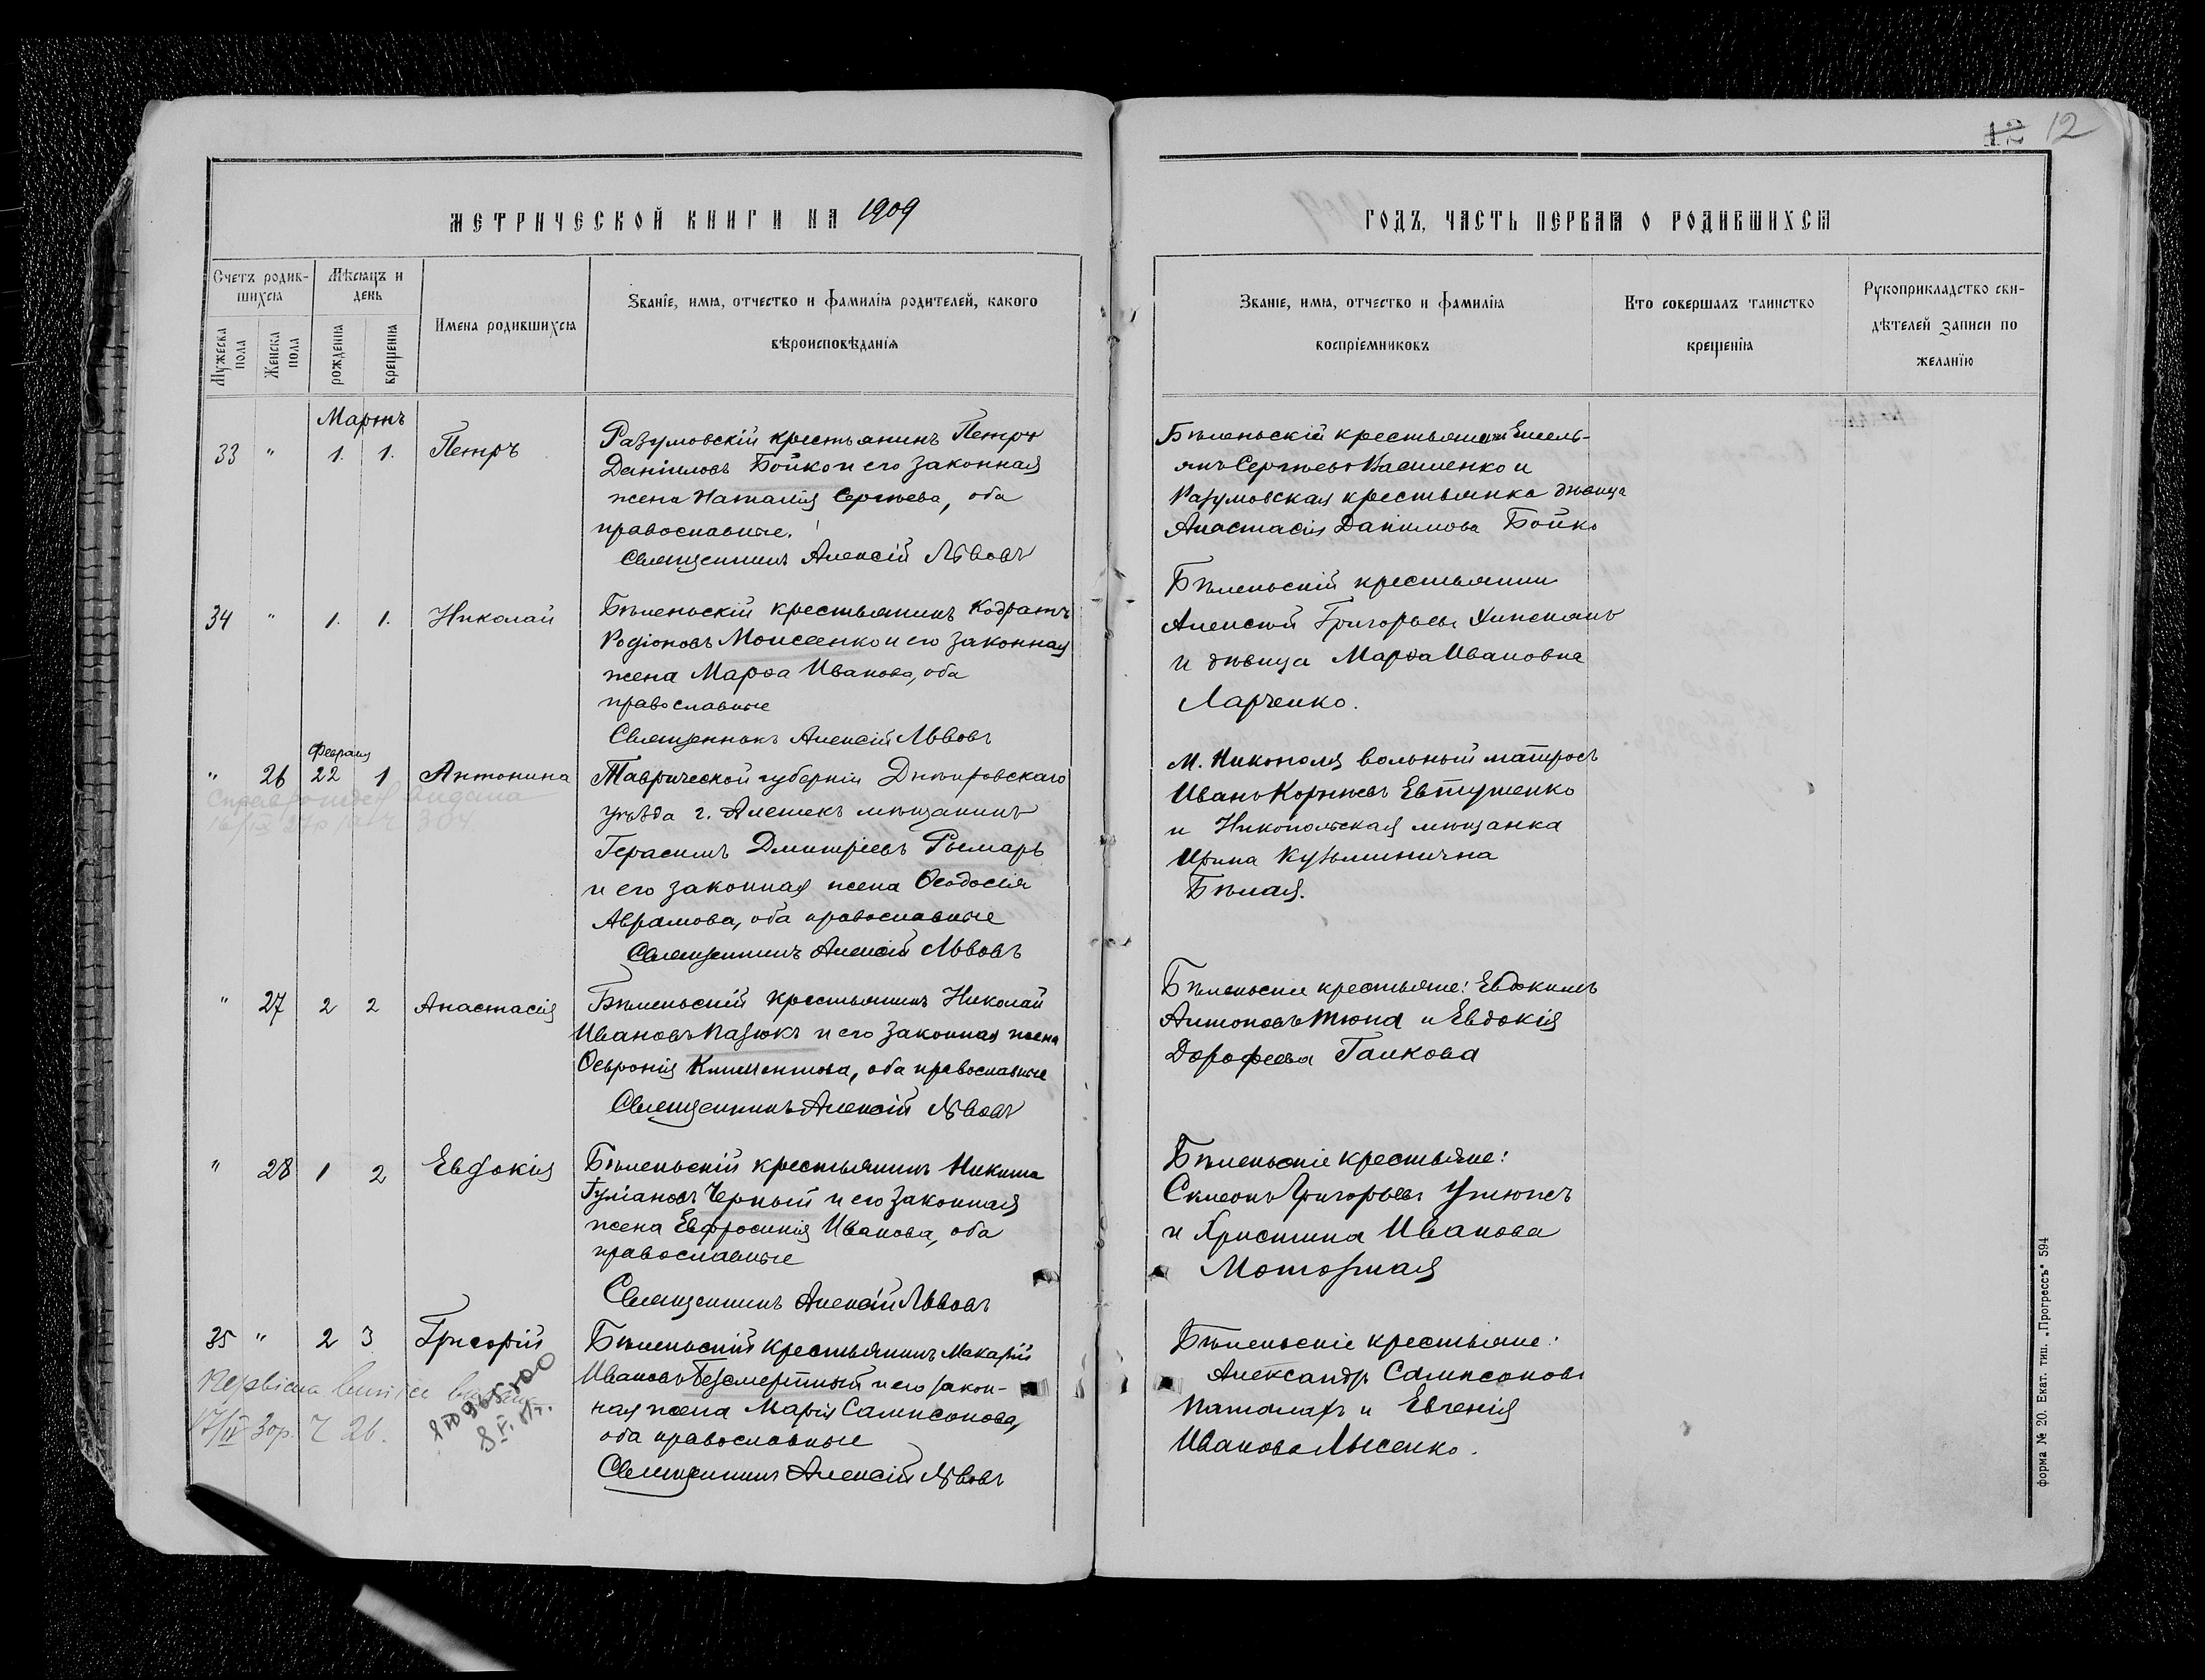 12 12
МЕТРИЧЕСКОЙ КНИГИ НА 1909
ГОДЪ, ЧАСТЬ ПЕРВАЯ О РОДИВШИХСЯ
Счетъ родив-
шихся
Мѣсяцъ и
день
Мужеска
пола
Женска
пола
рожденія
крещенія
Имена родившихся
Званіе, имя, отчество и фамилія родителей, какого
вѣроисповѣданія
Званіе, имя, отчество и фамилія
воспріемниковъ
Кто совершалъ таинство
крещенія
Рукоприкладство сви-
дѣтелей записи по
желанію
Мартъ
33 " 1. 1. Петръ
Разумовскій крестьянинъ Петръ
Даніиловъ Бойко и его законная
жена Наталія Сергѣева, оба
православные.
Священникъ Алексій Львовъ
Бѣленьскій крестьянинъ Емель-
янъ Сергѣевъ Василенко и
Разумовская крестьянка дѣвица
Анастасія Даніилова Бойко
34 " 1. 1. Николай
Бѣленьскій крестьянинъ Кодратъ
Родіоновъ Моисеенко и его законная
жена Марѳа Иванова, оба
православные
Священникъ Алексій Львовъ
Бѣленьскій крестьянин
Алексій Григорьевъ
и дѣвица Марѳа Ивановна
Ларченко.
Февраля
" 26 22 1 Антонина
Таврической губерніи Днѣпровскаго
уѣзда г. Алешекъ мѣщанинъ
Герасимъ Дмитріевъ Рымарь
и его законная жена Ѳеодосія
Аврамова, оба православные
Священникъ Алексій Львовъ
М. Никополя вольный матросъ
Иванъ Корнѣевъ Евтушенко
и Никопольская мѣщанка
Ирина Кузьминична
Бѣлая.
" 27 2 2 Анастасія
Бѣленьскій крестьянинъ Николай
Ивановъ Пазюкъ и его законная жена
Ѳевронія Климентова, оба православные
Священникъ Алексій Львовъ
Бѣленьскіе крестьяне: Евдокимъ
Антоновъ Тюпа и Евдокія
Дорофеева Галкова
" 28 1 2 Евдокія
Бѣленьскій крестьянинъ Никита
Гуріановъ Черный и его законная
жена Евфросинія Иванова, оба
православные
Священникъ Алексій Львовъ
Бѣленьскіе крестьяне:
Симеонъ Григорьевъ Утюжъ
и Христина Иванова
Моторная
35 " 2 3 Григорій
Бѣленьскій крестьянинъ Макарій
Ивановъ Безсмертный и его закон-
ная жена Марія Самисонова,
оба православные
Священникъ Алексій Львовъ
Бѣленьскіе крестьяне:
Александръ Самисоновъ
Паламарь и Евгенія
Иванова Лысенко.
форма № 20. Екат. тип. „Прогрессъ" 594